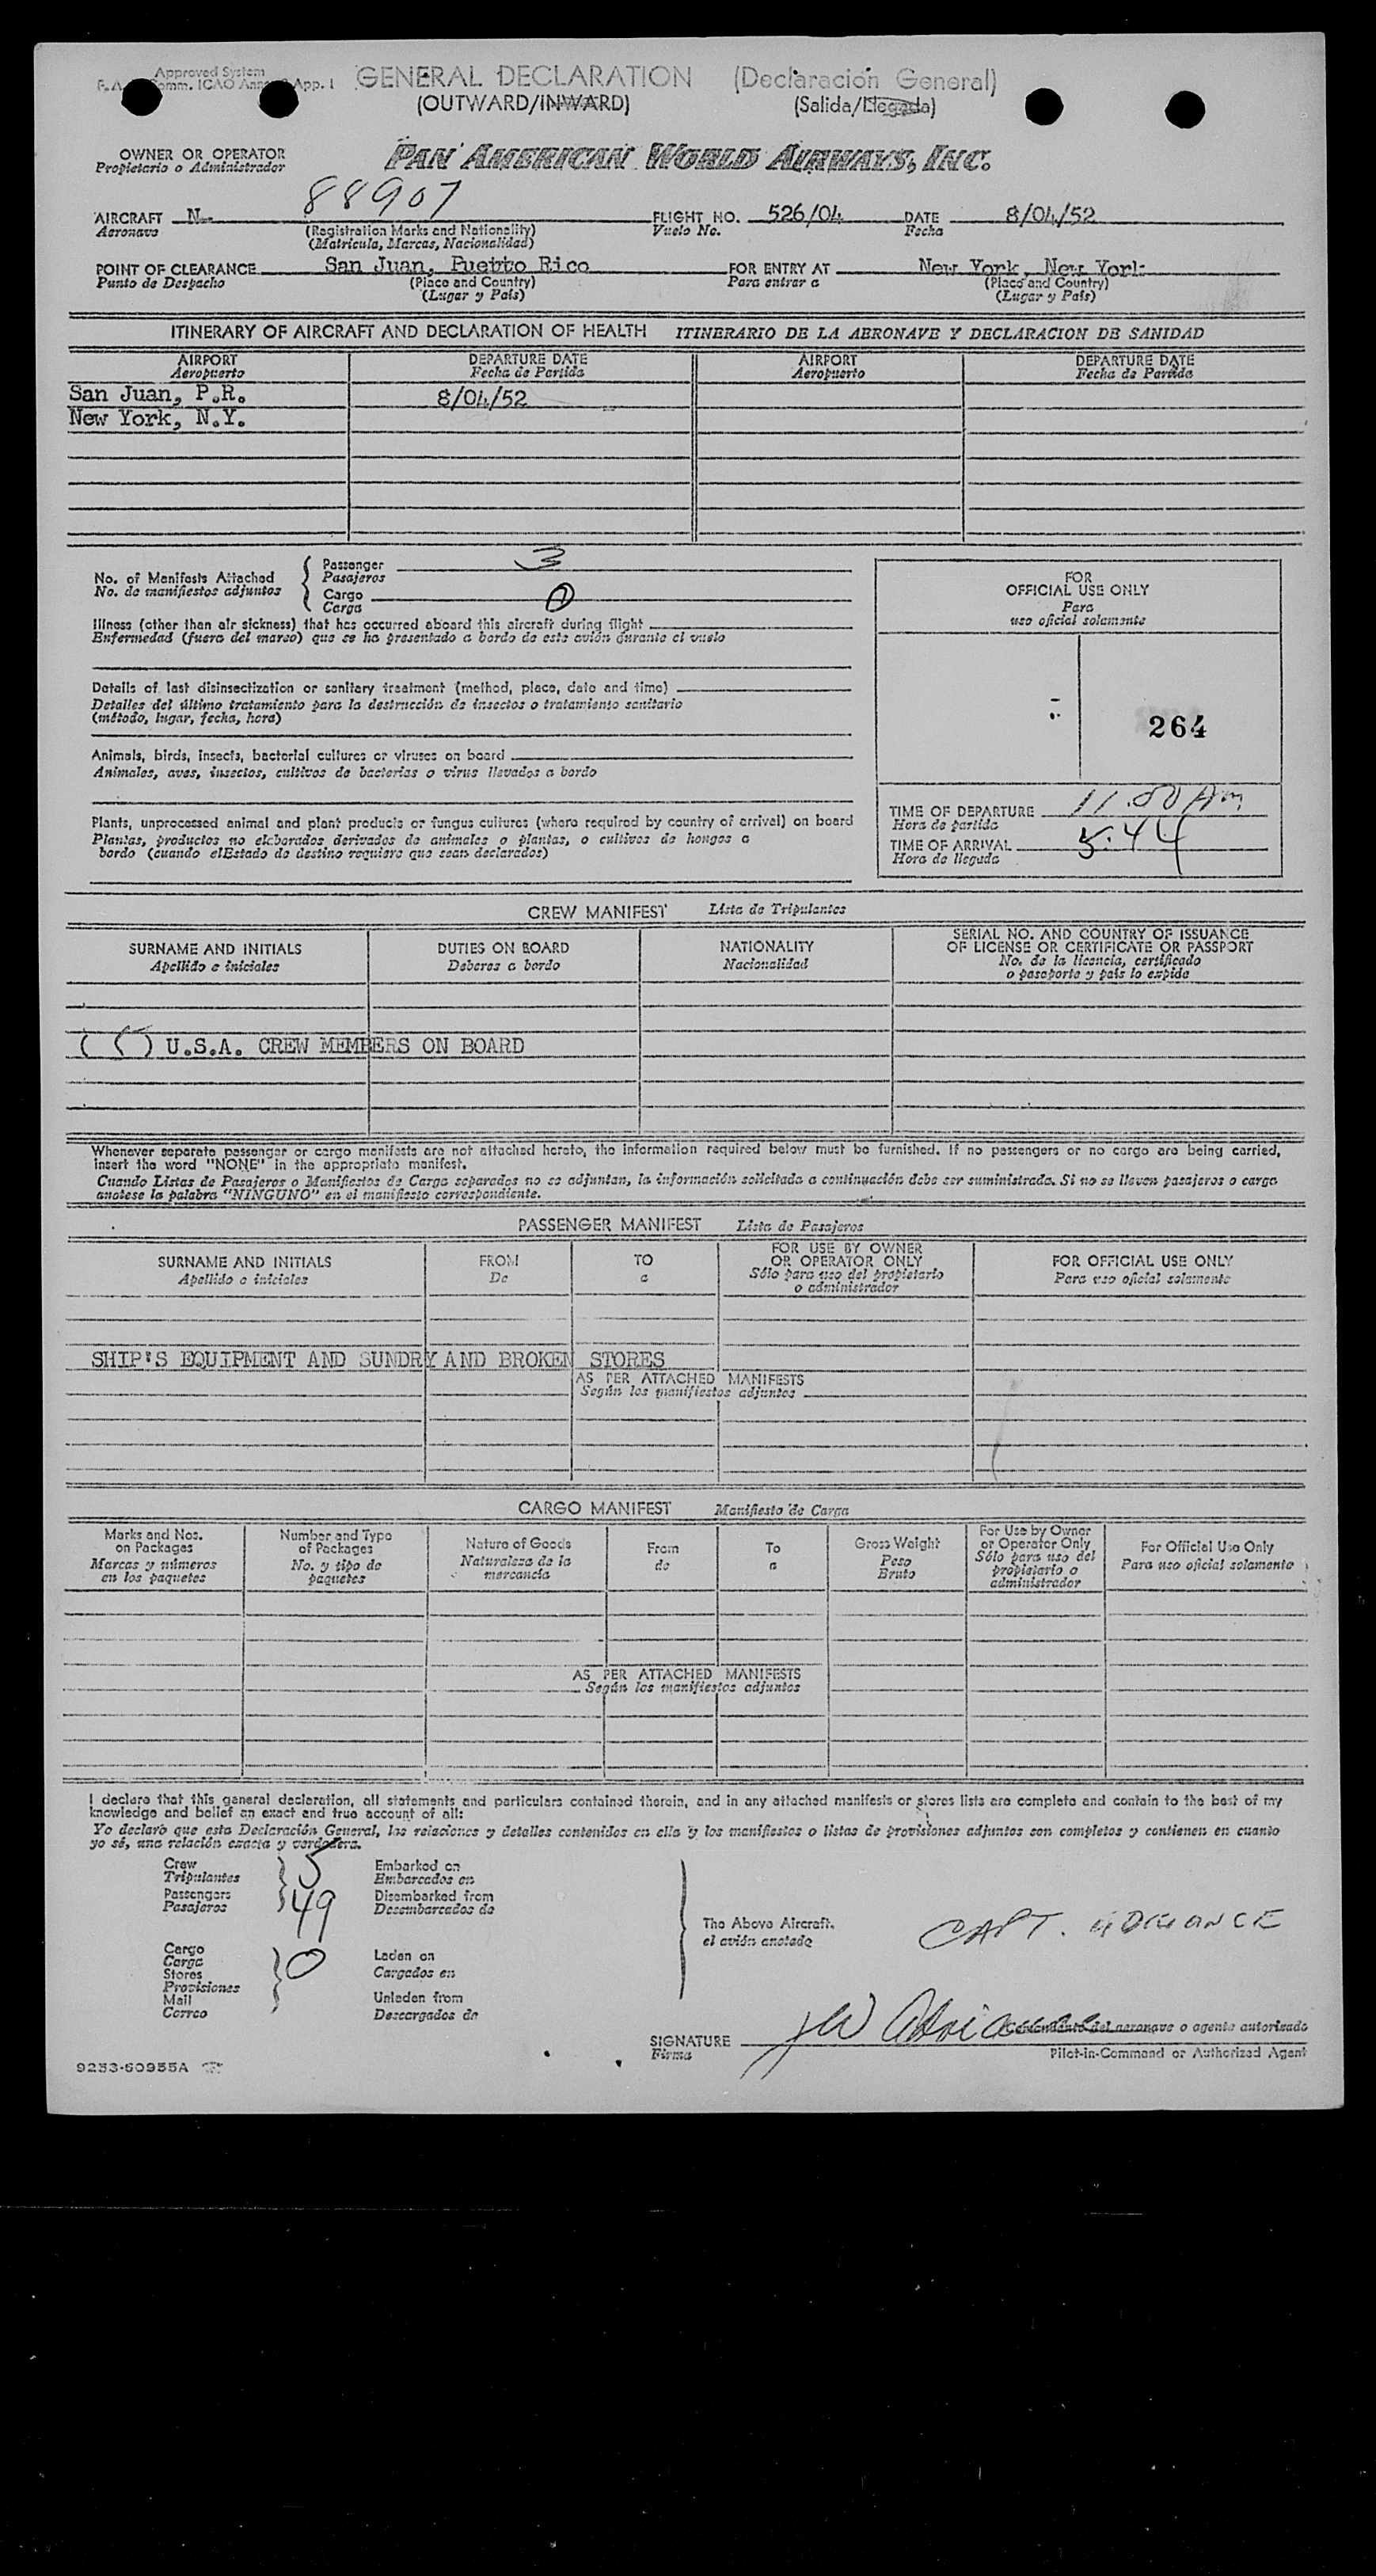 Approved System
Comm. ICAO App. 1
GENERAL DECLARATION (Declaración General)
(OUTWARD/INWARD) (Salida/Llegada)
OWNER OR OPERATOR
Propietario o Administrador
PAN AMERICAN WORLD AIRWAYS, INC.
AIRCRAFT N- 88907 FLIGHT NO. 526/04 DATE 8/04/52
Aeronave (Registration Marks and Nationality) Vuelo No. Fecha
(Matricula, Marcas, Nacionalidad)
POINT OF CLEARANCE San Juan, Puerto Rico FOR ENTRY AT New York, New York
Punto de Despacho (Place and Country) Para entrar a (Place and Country)
(Lugar y País) (Lugar y País)
ITINERARY OF AIRCRAFT AND DECLARATION OF HEALTH ITINERARIO DE LA AERONAVE Y DECLARACION DE SANIDAD
AIRPORT DEPARTURE DATE AIRPORT DEPARTURE DATE
Aeropuerto Fecha de Partida Aeropuerto Fecha de Partida
San Juan, P.R. 8/04/52
New York, N.Y.
No. of Manifests Attached
No. de manifiestos adjuntos
Passenger 3
Pasajeros
Cargo 0
Carga
Illness (other than air sickness) that has occurred aboard this aircraft during flight
Enfermedad (fuera del mareo) que se ha presentado a bordo de este avión durante el vuelo
Details of last disinsectization or sanitary treatment (method, place, date and time)
Detalles del último tratamiento para la destrucción de insectos o tratamiento sanitario
(método, lugar, fecha, hora)
Animals, birds, insects, bacterial cultures or viruses on board
Animales, aves, insectos, cultivos de bacterias o virus llevados a bordo
Plants, unprocessed animal and plant products or fungus cultures (where required by country of arrival) on board
Plantas, productos no elaborados derivados de animales o plantas, o cultivos de hongos a
bordo (cuando el Estado de destino requiere que sean declarados)
FOR
OFFICIAL USE ONLY
Para
uso oficial solamente
264
TIME OF DEPARTURE 11.00 Am
Hora de partida
TIME OF ARRIVAL 5.44
Hora de llegada
CREW MANIFEST Lista de Tripulantes
SURNAME AND INITIALS DUTIES ON BOARD NATIONALITY SERIAL NO. AND COUNTRY OF ISSUANCE
OF LICENSE OR CERTIFICATE OR PASSPORT
Apellido e iniciales Deberes a bordo Nacionalidad No. de la licencia, certificado
o pasaporte y país lo expide
( 5 ) U.S.A. CREW MEMBERS ON BOARD
Whenever separate passenger or cargo manifests are not attached hereto, the information required below must be furnished. If no passengers or no cargo are being carried,
insert the word "NONE" in the appropriate manifest.
Cuando Listas de Pasajeros o Manifiestos de Carga separados no se adjuntan, la información solicitada a continuación debe ser suministrada. Si no se lleven pasajeros o carga
anotese la palabra "NINGUNO" en el manifiesto correspondiente.
PASSENGER MANIFEST Lista de Pasajeros
SURNAME AND INITIALS FROM TO FOR USE BY OWNER
OR OPERATOR ONLY FOR OFFICIAL USE ONLY
Apellido e iniciales De a Sólo para uso del propietario
o administrador Para uso oficial solamente
SHIP'S EQUIPMENT AND SUNDRY AND BROKEN STORES
AS PER ATTACHED MANIFESTS
Según los manifiestos adjuntos
CARGO MANIFEST Manifiesto de Carga
Marks and Nos.
on Packages
Marcas y números
en los paquetes
Number and Type
of Packages
No. y tipo de
paquetes
Nature of Goods
Naturaleza de la
mercancía
From
de
To
a
Gross Weight
Peso
Bruto
For Use by Owner
or Operator Only
Sólo para uso del
propietario o
administrador
For Official Use Only
Para uso oficial solamente
AS PER ATTACHED MANIFESTS
Según los manifiestos adjuntos
I declare that this general declaration, all statements and particulars contained therein, and in any attached manifests or stores lists are complete and contain to the best of my
knowledge and belief an exact and true account of all:
Yo declaro que esta Declaración General, las relaciones y detalles contenidos en ella y los manifiestos o listas de provisiones adjuntos son completos y contienen en cuanto
yo sé, una relación exacta y verdadera.
Crew 5 Embarked on
Tripulantes Embarcados en
Passengers 49 Disembarked from
Pasajeros Desembarcados de
Cargo
Carga 0 Laden on
Stores Cargados en
Provisiones
Mail Unladen from
Correo Descargados de
The Above Aircraft.
el avión anotado
CAPT. ADRIANCE
SIGNATURE JW Adriance
Firma
Comandante del aeronave o agente autorizado
Pilot-in-Command or Authorized Agent
9253-60955A